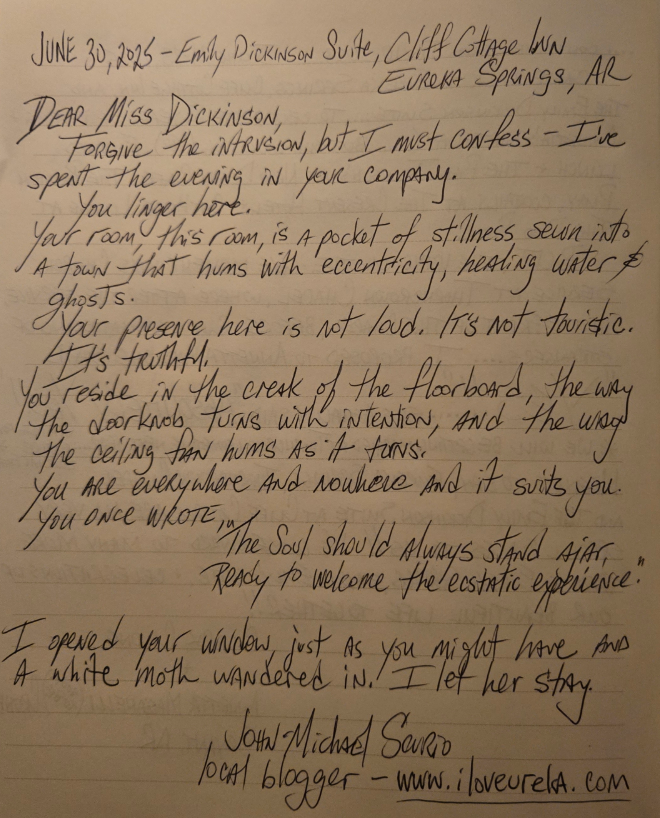 JUNE 30, 2025 - Emily Dickinson Suite, Cliff Cottage Inn
Eureka Springs, AR
Dear Miss Dickinson,
Forgive the intrusion, but I must confess - I've
spent the evening in your company.
You linger here.
Your room, this room, is a pocket of stillness sewn into
a town that hums with eccentricity, healing water &
ghosts.
Your presence here is not loud. It's not touristic.
It's truthful.
You reside in the creak of the floorboard, the way
the doorknob turns with intention, and the way
the ceiling fan hums as it turns.
You are everywhere and nowhere and it suits you.
You once wrote,
"The Soul should always stand ajar,
Ready to welcome the ecstatic experience."
I opened your window, just as you might have and
a white moth wandered in. I let her stay.
John-Michael Scurio
local blogger - www.iloveureka.com